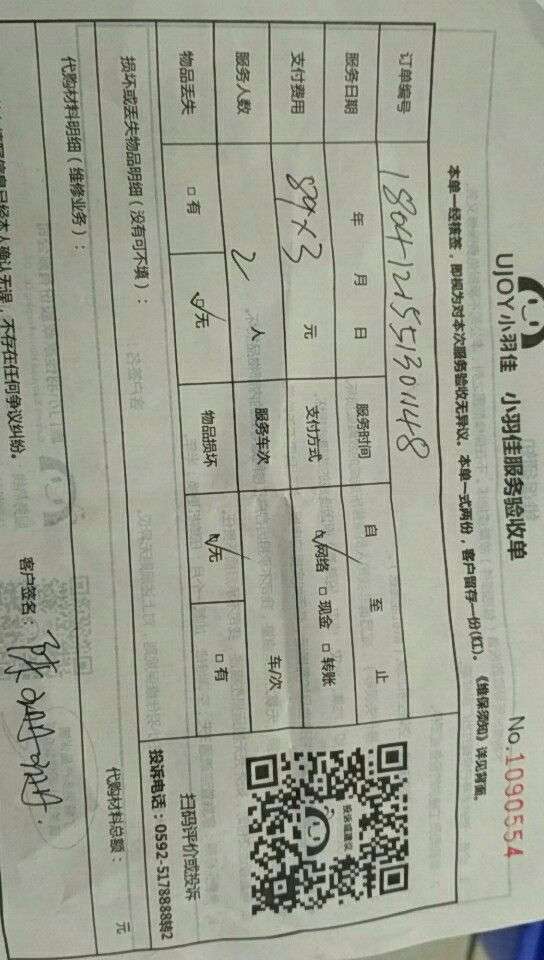 UJOY小羽佳 小羽佳服务验收单 No.1090554
本单一经核签，即视为对本次服务验收无异议。本单一式两份，客户留存一份(红)。《维保须知》详见背面。
订单编号 180412155130148
服务日期 年 月 日 服务时间 自 至 止
支付费用 89×3 元 支付方式 网络 现金 转账
服务人数 2 人 服务车次 车/次
物品丢失 有 无 物品损坏 无 有
扫码评价或投诉
投诉电话：0592-5178888转2
损坏或丢失物品明细（没有可不填）：
代购材料明细（维修业务）： 代购材料总额： 元
信息已经本人确认无误，不存在任何争议纠纷。 客户签名：